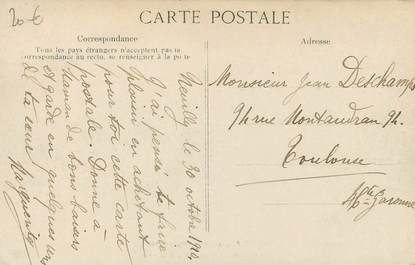 20 €
CARTE POSTALE
Correspondance
Tous les pays étrangers n'acceptent pas la
correspondance au recto, se renseigner à la poste
Adresse
Neuilly le 30 octobre 1904
J'ai pensé te faire
plaisir en achetant
pour toi cette carte
postale. Donne à
Maman de bons baisers
et garde en quelques uns
de ta sœur
Marguerite
Monsieur Jean Deschamps
94 rue Montaudran 94.
Toulouse
Hte Garonne